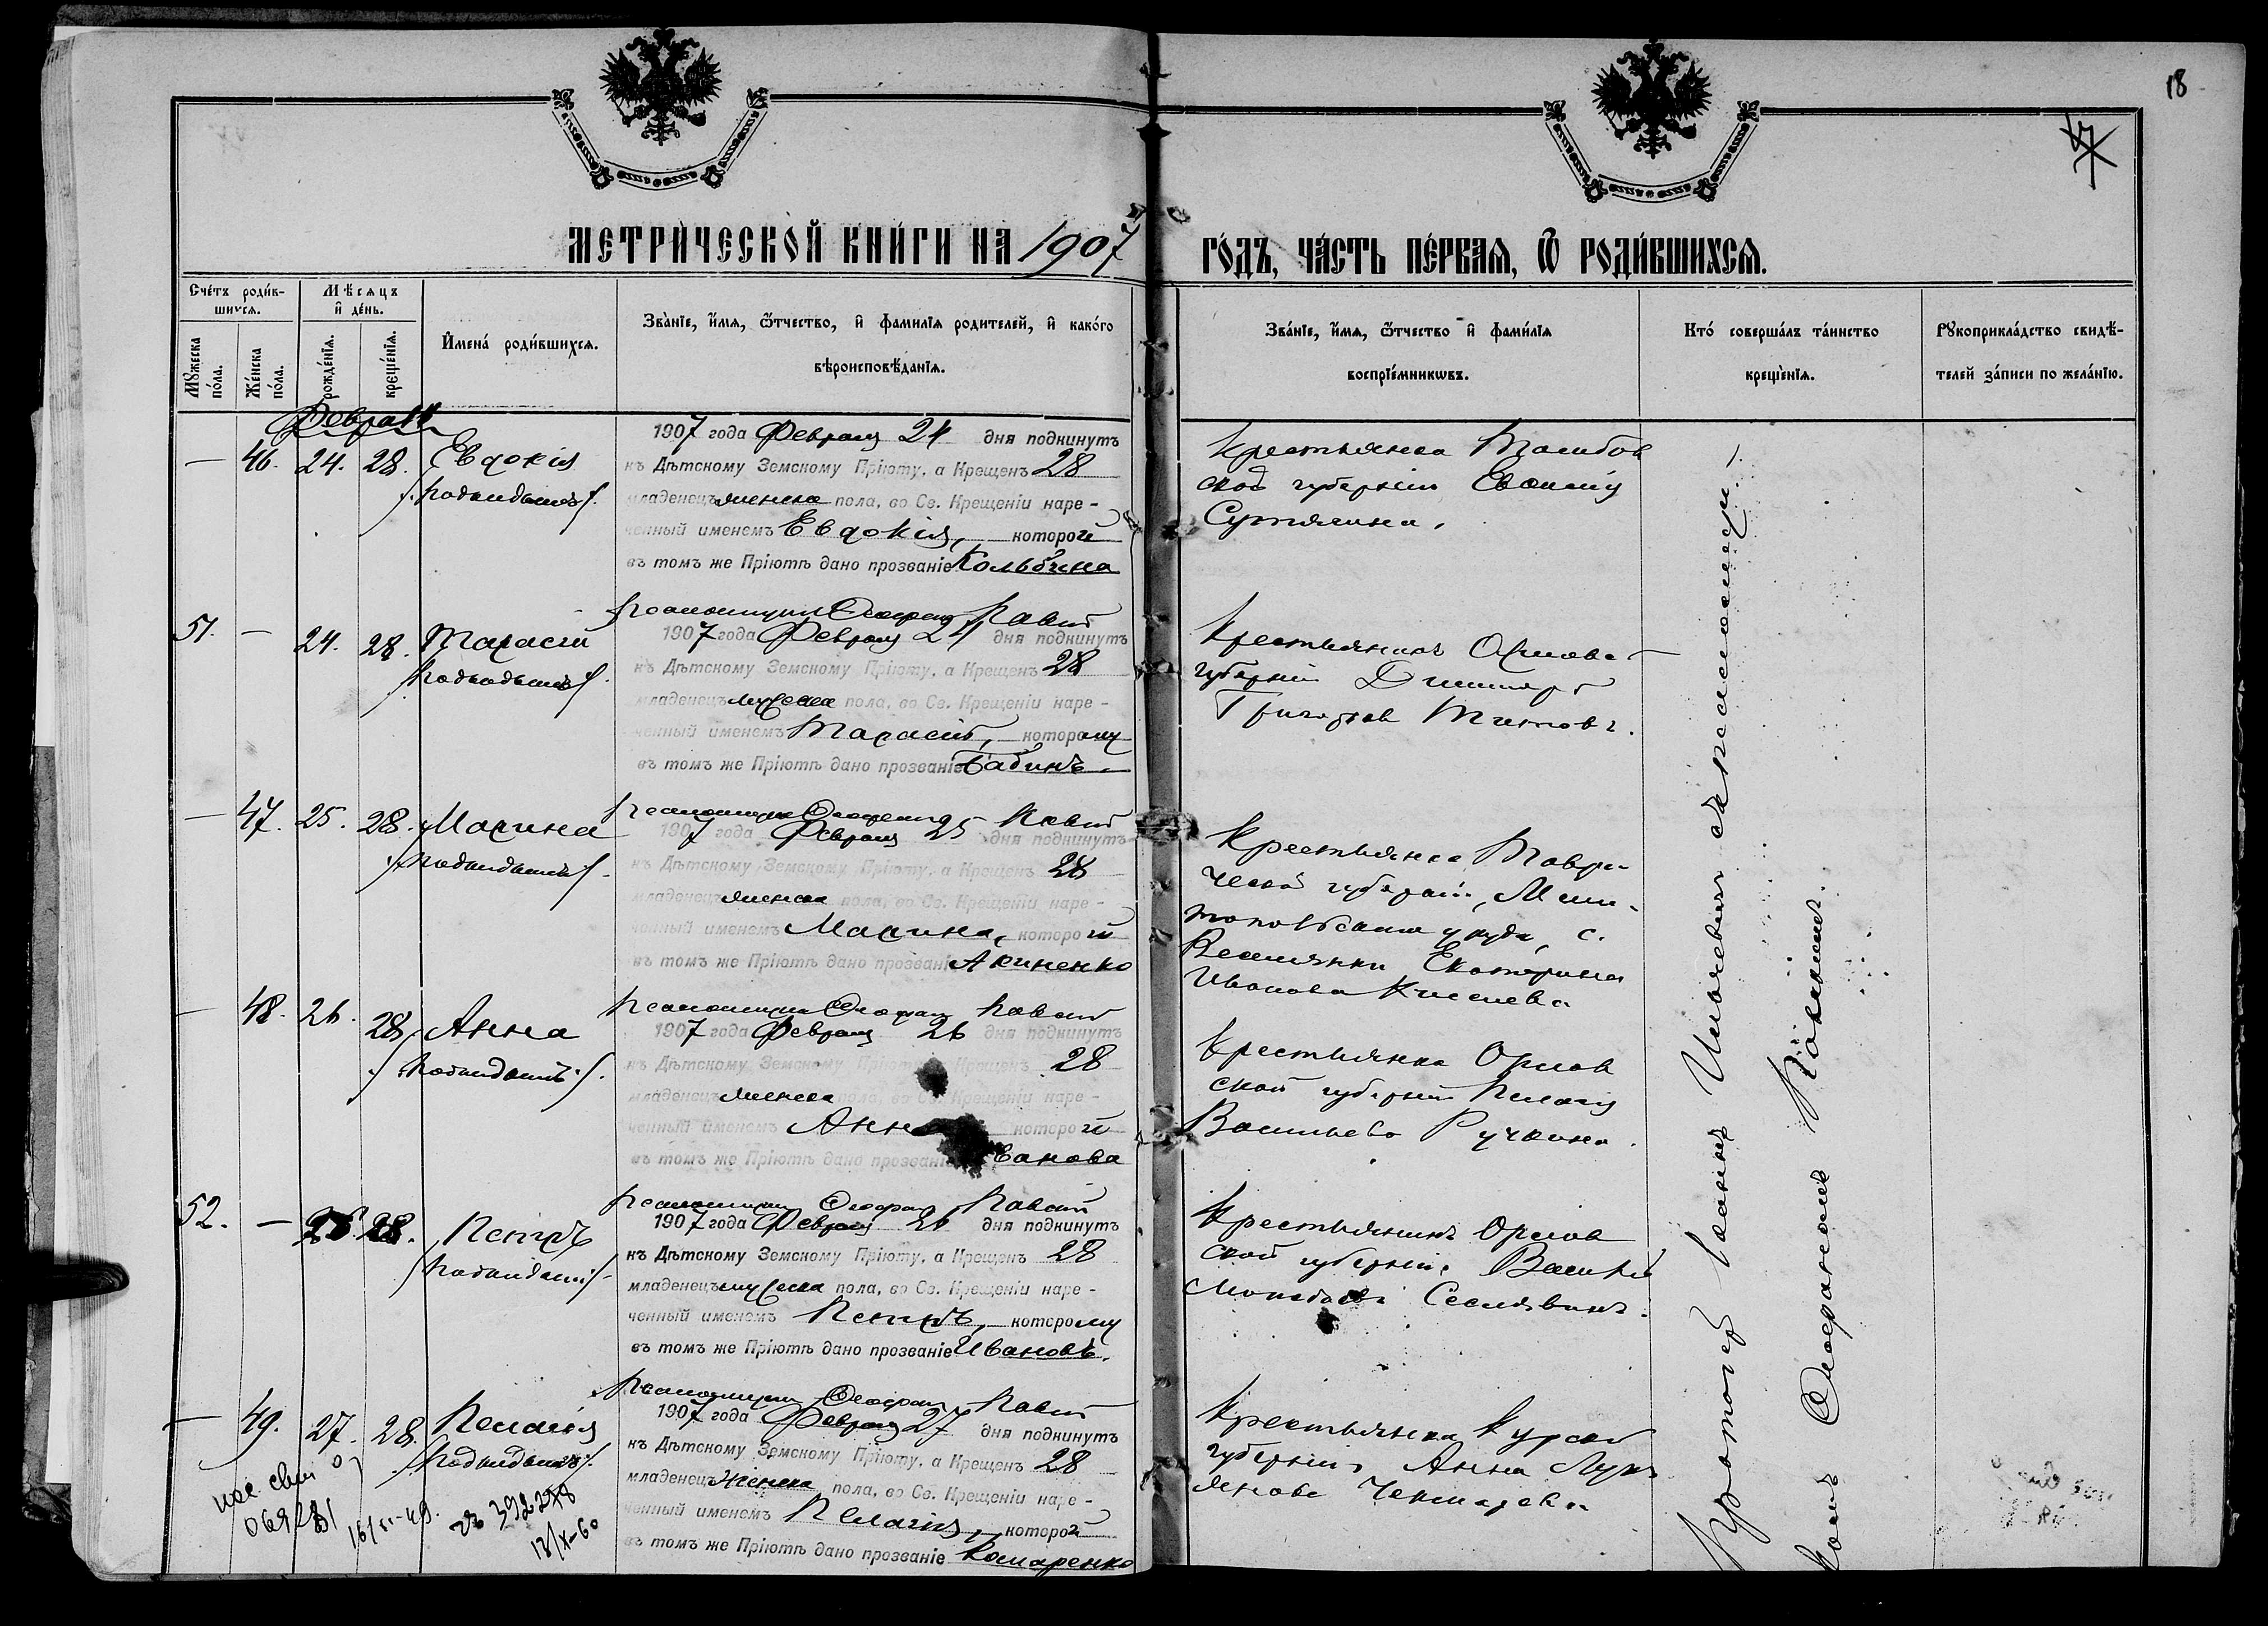 18
МЕТРИ́ЧЕСКОЙ КНИ́ГИ НА 1907 ГО́ДЪ, ЧА́СТЬ ПЕ́РВАѦ, Ѿ РОДИ́ВШИХСѦ.
Счéтъ роди́в-
шихсѧ.
Мѣсѧцъ
и҆ де́нь.
Мꙋжеска
по́ла.
Же́нска
по́ла.
рожде́нїѧ.
креще́нїѧ.
И҆мена́ роди́вшихсѧ.
Зва́нїе, и҆́мѧ, ѻ҆́тчество, и҆ фами́лїѧ роди́телей, и҆ како́гѡ
вѣроисповѣ́данїѧ.
Зва́нїе, и҆́мѧ, ѻ҆́тчество и҆ фами́лїѧ
воспрїе́мникѡвъ.
Кто́ соверша́лъ та́инство
креще́нїѧ.
Рꙋкоприкла́дство свидѣ́-
телей за́писи по жела́нїю.
Февраль
— 46. 24. 28. Евдокія
1907 года Февраля 24 дня подкинутъ
къ Дѣтскому Земскому Пріюту, а Крещенъ 28
младенецъ женска пола, во Св. Крещеніи наре-
ченный именемъ Евдокія, которой
въ томъ же Пріютѣ дано прозваніе Кольбина
Крестьянка Тамбов
ской губерніи
51. — 24. 28. Тарасій
Псаломщикъ Павскій
1907 года Февраля 24 дня подкинутъ
къ Дѣтскому Земскому Пріюту, а Крещенъ 28
младенецъ мужеска пола, во Св. Крещеніи наре-
ченный именемъ Тарасій, которому
въ томъ же Пріютѣ дано прозваніе Бабинъ.
Крестьянинъ
губерніи Димитрій
Григорьев Титовъ.
— 47. 25. 28. Марина
Псаломщикъ Павскій
1907 года Февраля 25 дня подкинутъ
къ Дѣтскому Земскому Пріюту, а Крещенъ 28
младенецъ женска пола, во Св. Крещеніи наре-
ченный именемъ Марина, которой
въ томъ же Пріютѣ дано прозваніе Акиненко
Крестьянка Таври-
ческой губерніи, Мели-
топольскаго уѣзда, с.
Веселянки Екатерина
Иванова Киселева
— 48. 26. 28. Анна
Псаломщикъ Павскій
1907 года Февраля 26 дня подкинутъ
къ Дѣтскому Земскому Крещенъ 28
младенецъ женска пола, во Св. Крещеніи наре-
ченный именемъ которой
въ томъ же Пріютѣ дано прозваніе
Крестьянка Орлов
ской губерніи Пелагія
Васильева Ручкина.
52. — 26. 28. Петръ
Псаломщикъ Павскій
1907 года Февраля 26 дня подкинутъ
къ Дѣтскому Земскому Пріюту, а Крещенъ 28
младенецъ мужеска пола, во Св. Крещеніи наре-
ченный именемъ Петръ, которому
въ томъ же Пріютѣ дано прозваніе Ивановъ.
Крестьянинъ Орлов
ской губерніи Василій
— 49. 27. 28. Пелагія
Псаломщикъ Павскій
1907 года Февраля 27 дня подкинутъ
къ Дѣтскому Земскому Пріюту, а Крещенъ 28
младенецъ женска пола, во Св. Крещеніи наре-
ченный именемъ Пелагія, которой
въ томъ же Пріютѣ дано прозваніе Комаренко
Крестьянка Курской
губерніи Анна Лукъ
янова Чекмарева
Протоіерей Іоаннъ
Павскій.